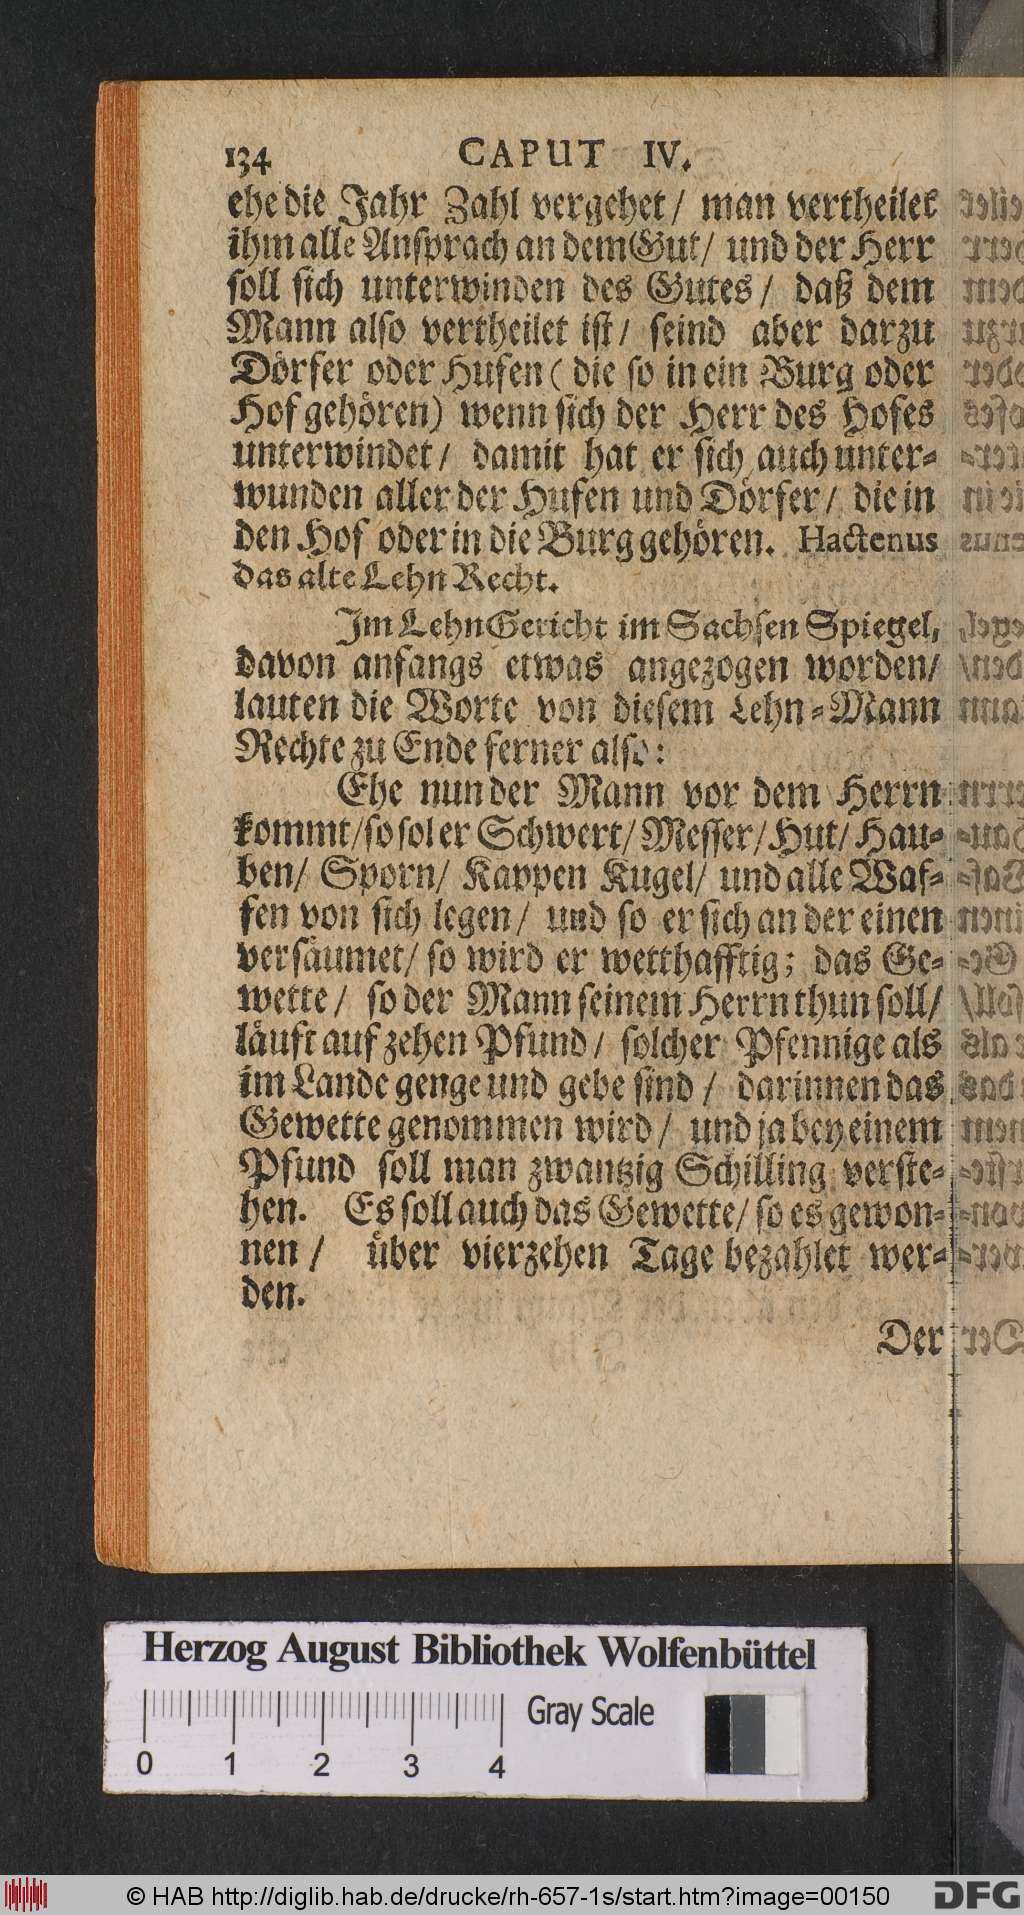 134 CAPUT IV.
ehe die Jahr Zahl vergehet/ man vertheilet
ihm alle Ansprach an dem Gut/ und der Herr
soll sich unterwinden des Gutes/ daß dem
Mann also vertheilet ist/ seind aber darzu
Dörfer oder Hufen (die so in ein Burg oder
Hof gehören) wenn sich der Herr des Hofes
unterwindet/ damit hat er sich auch unter-
wunden aller der Hufen und Dörfer/ die in
den Hof oder in die Burg gehören. Hactenus
das alte Lehn Recht.
Im Lehn Gericht im Sachsen Spiegel,
davon anfangs etwas angezogen worden/
lauten die Worte von diesem Lehn-Mann
Rechte zu Ende ferner also:
Ehe nun der Mann vor dem Herrn
kommt/ so sol er Schwert/ Messer/ Hut/ Hau-
ben/ Sporn/ Kappen Kugel/ und alle Waf-
fen von sich legen/ und so er sich an der einen
versäumet/ so wird er wetthafftig; das Ge-
wette/ so der Mann seinem Herrn thun soll/
läuft auf zehen Pfund/ solcher Pfennige als
im Lande genge und gebe sind/ darinnen das
Gewette genommen wird/ und ja bey einem
Pfund soll man zwantzig Schilling verste-
hen. Es soll auch das Gewette/ so es gewon-
nen/ über vierzehen Tage bezahlet wer-
den.
Der
Herzog August Bibliothek Wolfenbüttel
Gray Scale
0 1 2 3 4
© HAB http://diglib.hab.de/drucke/rh-657-1s/start.htm?image=00150
DFG